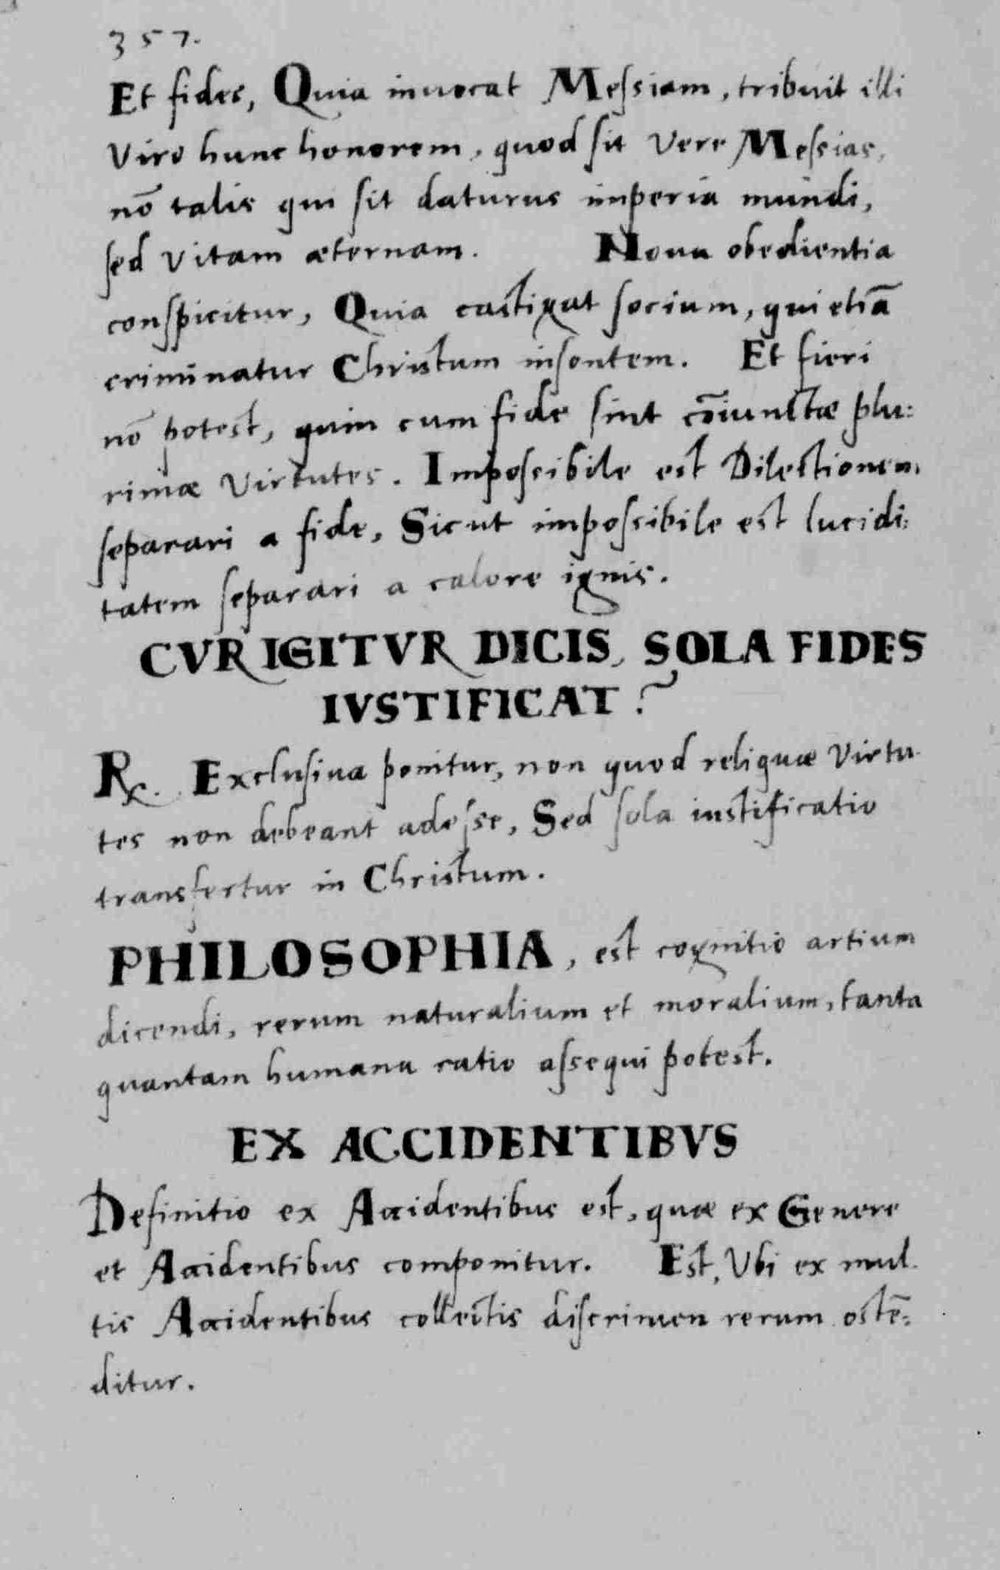 357.
Et fides, Quia inuocat Meſsiam, tribuit illi
Viro hunc honorem, quod sit Vere Meſsias,
nō talis qui ſit daturus imperia mundi,
ſed Vitam æternam. Noua obedientia
conſpicitur, Quia castigat ſocium, qui etiā
criminatur Christum inſontem. Et fieri
nō potest, quin cum fide ſint cōiunctæ plu:
rimæ Virtutes. Impoſsibile est Dilectionem
ſeparari a fide, Sicut impoſsibile est lucidi:
tatem ſeparari a calore ignis.
CVR IGITVR DICIS, SOLA FIDES
IVSTIFICAT?
℞. Excluſiua ponitur, non quod reliquæ Virtu-
tes non debeant adeſse, Sed ſola iustificatio
transfertur in Christum.
PHILOSOPHIA, est cognitio artium
dicendi, rerum naturalium et moralium, tanta
quantam humana ratio aſsequi potest.
EX ACCIDENTIBVS
Definitio ex Accidentibus est, quæ ex Genere
et Accidentibus componitur. Est, Vbi ex mul-
tis Accidentibus collectis diſcrimen rerum ostē:
ditur.